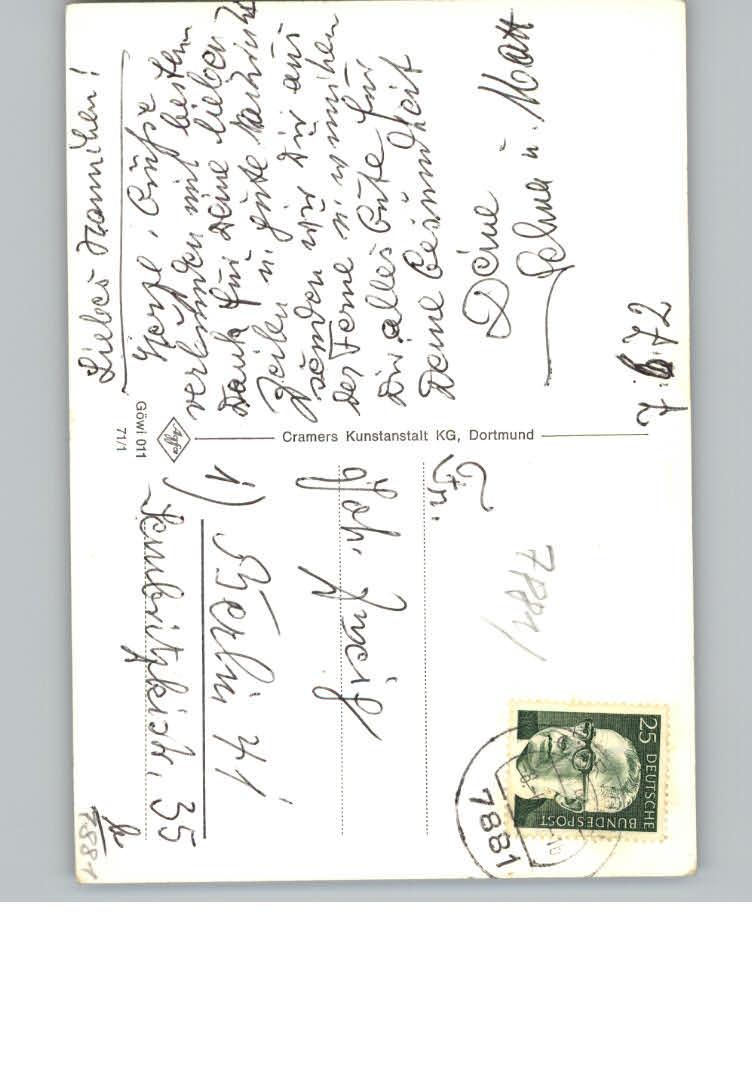 Liebes Hannchen!
Herzl. Grüße
verbunden mit bestem
Dank für Deine lieben
Zeilen u. gute Nachricht
senden wir Dir aus
der Ferne u. wünschen
Dir alles Gute für
Deine Gesundheit
Deine
u. Matt
Z. 9. 72
Göwi 011
71/1
Agfa
Cramers Kunstanstalt KG, Dortmund
Fr.
Joh.
1) Berlin 41
35
7881
7881
7881
25 DEUTSCHE
BUNDESPOST